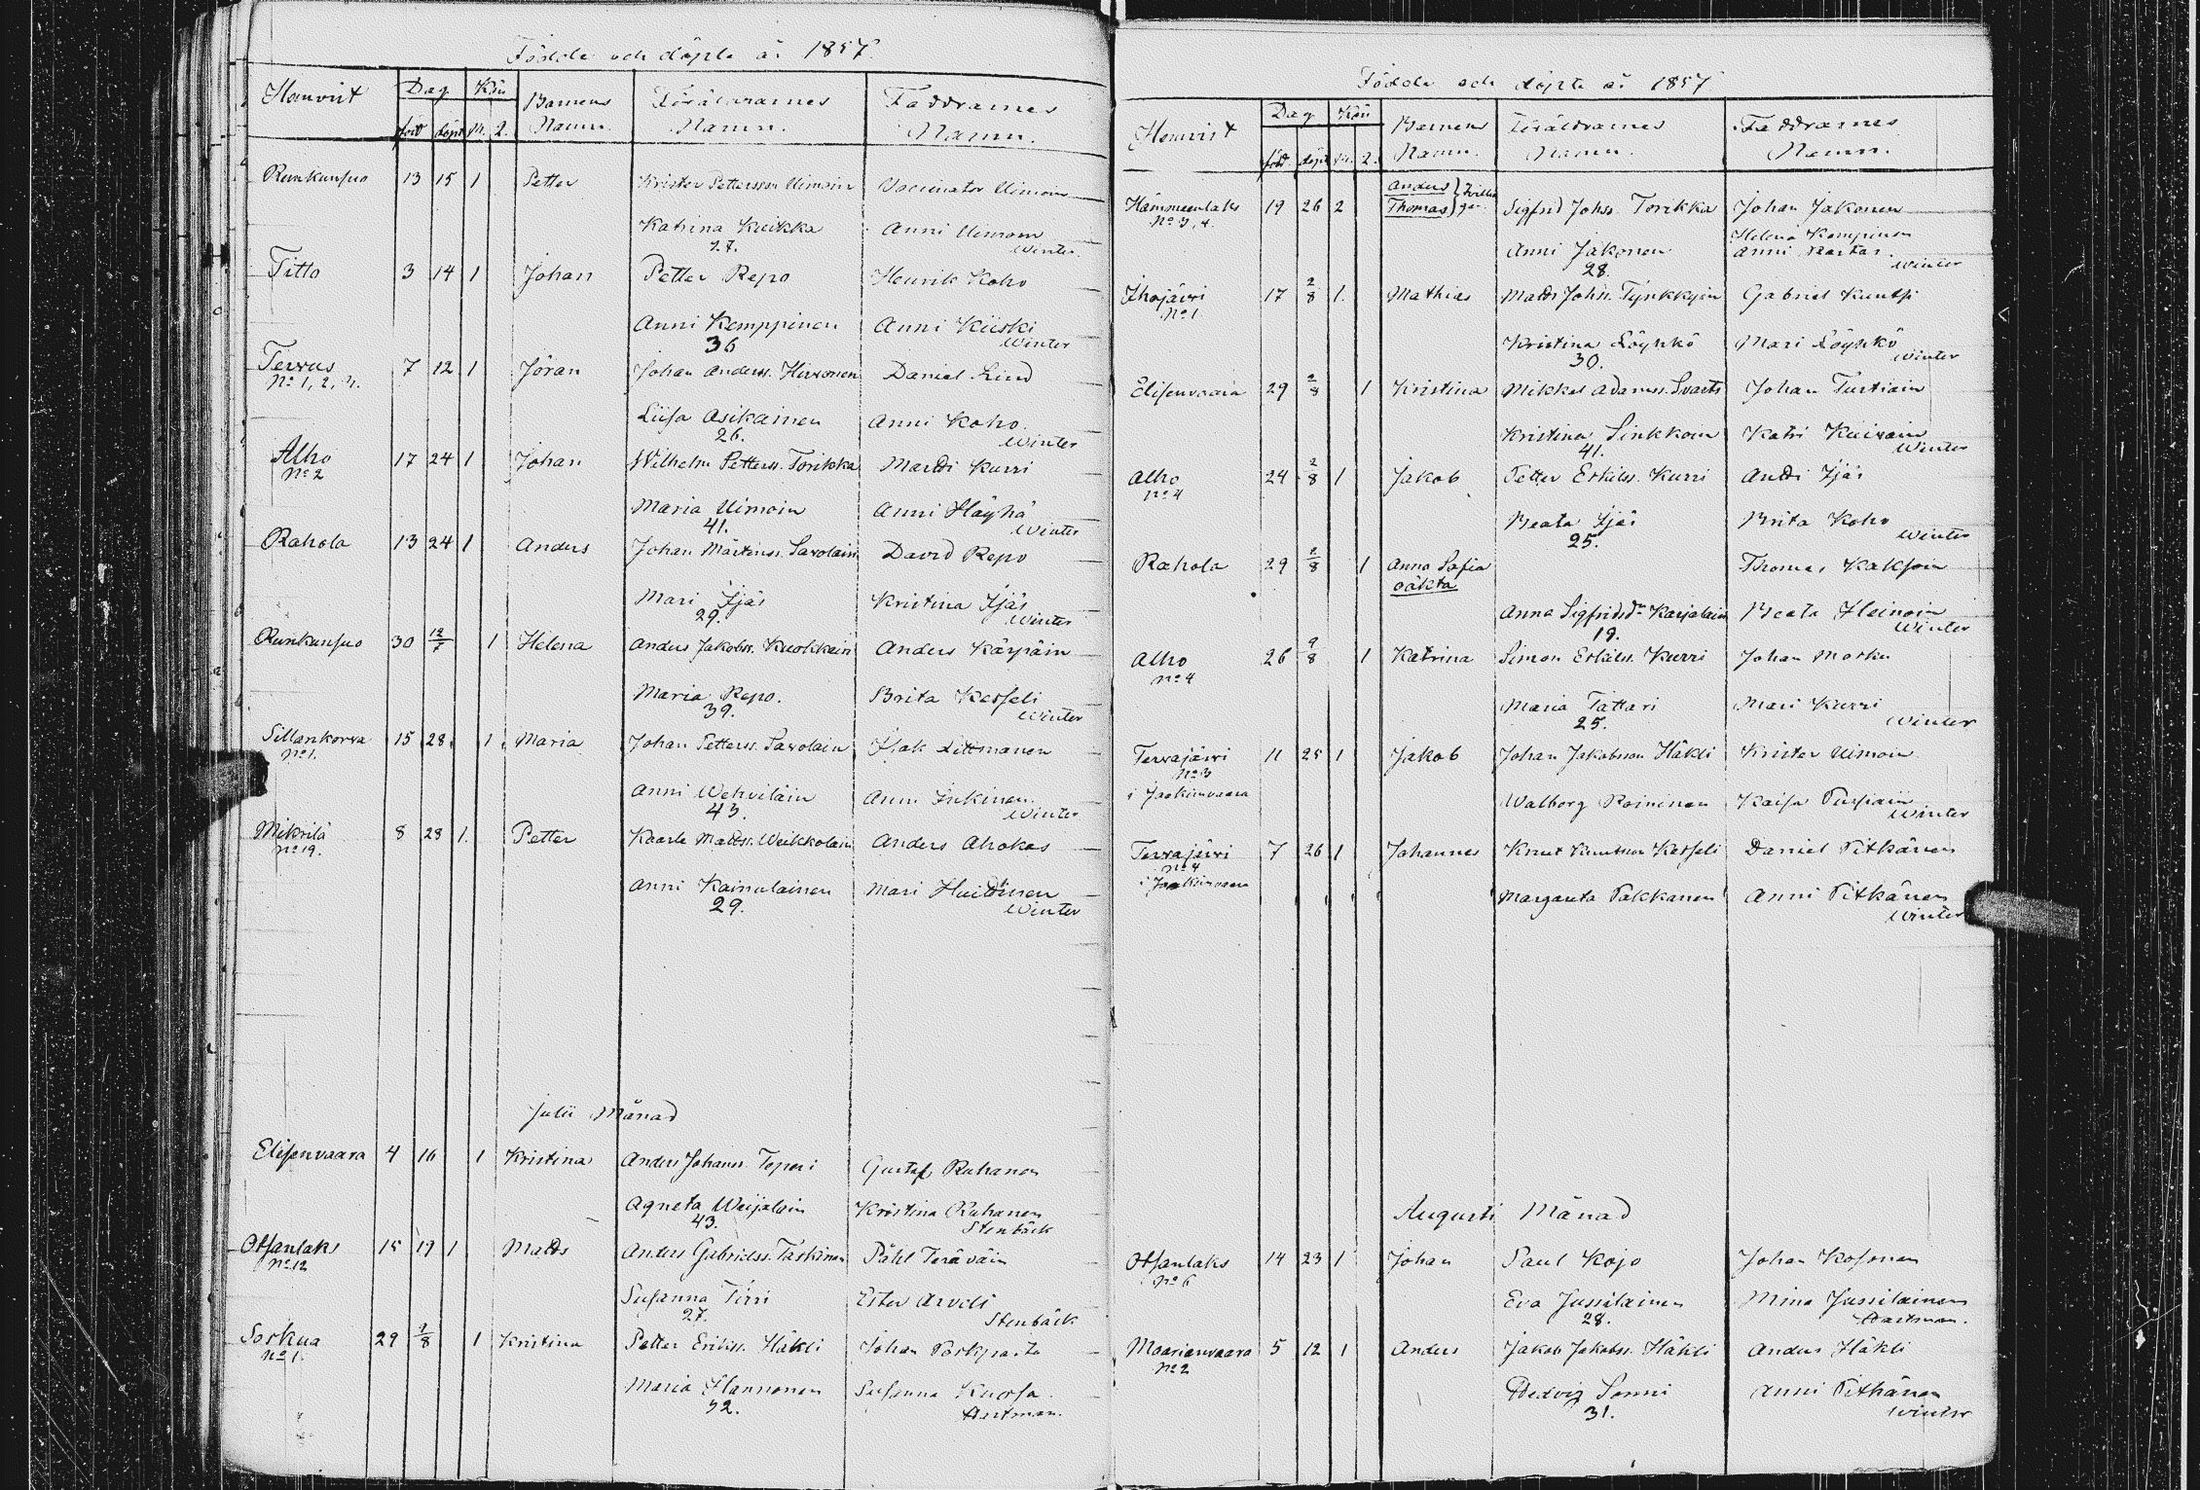 Födde och döpte år 1857.
Hemvist Dag Kön Barnens Föräldrarnes Faddrarnes
född döpt M. Q. Namn. Namn. Namn.
Runkunsuo 13 15 1 Petter Krister Pettersson Uimoin Vaccinator Uimoin
Katrina Kuikka Anni Uimoin
27. Winter.
Titto 3 14 1 Johan Petter Repo Henrik Koho
Anni Kemppinen Anni Kiiski
36 Winter
Tervus 7 12 1 Jöran Johan Anderss. Hirvonen Daniel Lind
No 1, 2, 4.
Liisa Asikainen Anni Koho.
26. Winter
Alho 17 24 1 Johan Wilhelm Petterss. Torikka Matdi Kurri
No 2
Maria Uimoin Anni Häyhä
41. Winter
Rahola 13 24 1 Anders Johan Mårtenss. Savolain David Repo
Mari Ijäs Kristina Ijäs
29. Winter
Runkunsuo 30 12/7 1 Helena Anders Jakobss. Kuokkain Anders Kärpäin
Maria Repo. Brita Kesseli
39. Winter
Sillankorva 15 28 1 Maria Johan Petterss. Savolain Isak Littmanen
No 1.
Anni Wehviläin Anni Inkinen
43. Winter
Mikrilä 8 28 1. Petter Kaarle Matdss. Weikkolain Anders Ahokas
No 19.
Anni Kainulainen Mari Huittinen
29. Winter
Julii Månad
Elisenvaara 4 16 1 Kristina Anders Johanss. Toperi Gustaf Ruhanen
Agneta Weijalain Kristina Ruhanen
43. Stenbäck
Otsanlaks 15 19 1 Matds Anders Gabrielss. Taskinen Påhl Teräväin
No 12
Susanna Tirri Ester Arveli
27. Stenbäck
Soskua 29 1/8 1 Kristina Petter Erikss. Häkli Johan Porkparta
No 1.
Maria Hannonen Susanna Kuosa
32. Hartman.
Födde och döpte år 1857
Hemvist Dag Kön Barnens Föräldrarnes Faddrarnes
född. döpt M. Q. Namn. Namn. Namn.
Anders } Tvillin
Hämmeenlaks 19 26 2 Thomas } gar. Sigfrid Johss. Torikka Johan Jakonen
No 3, 4. Helena Kempinen
Anni Jakonen Anni
28. Winter
Ihojärvi 17 2/8 1. Mathias Matds Johss. Tynkkyin Gabriel Kuntsi
No 1.
Kristina Löyhkö Mari Löyhkö
30. Winter
Elisenvaara 29 2/8 1 Kristina Mikkel Adamss. Svarts Johan Turtiain
Kristina Sinkkoin Katri Kuivain
41. Winter
Alho 24 2/8 1 Jakob Petter Eskilss. Kurri Andi Ijäs
No 4
Beata Ijäs Brita Koho
25. Winter
Rahola 29 2/8 1 Anna Sofia Thomas Kaksoin
oäkta
Anna Sigfridsdr Karjalain Beata Heinoin
19. Winter
Alho 26 9/8 1 Katrina Simon Eskilss. Kurri Johan Mosku
No 4
Maria Tattari Mari Kurri
25. Winter
Tervajärvi 11 25 1 Jakob Johan Jakobsson Häkli Krister Uimoin
No 3
i Jaakimvaara
Walborg Roininen Kaisa Pursiain
Winter
Tervajärvi 7 26 1 Johannes Knut Knutsson Kesseli Daniel Pitkänen
No 4
i Jaakimvaara
Margareta Pakkanen Anni Pitkänen
Winter
Augusti Månad
Otsanlaks 14 23 1 Johan Paul Kojo Johan Kosonen
No 6
Eva Jussilainen Mina Jussilainen
28. Hartman.
Maarianvaara 5 12 1 Anders Jakob Jakobss. Häkli Anders Häkli
No 2
Hedvig Sonni Anni Pitkänen
31. Winter